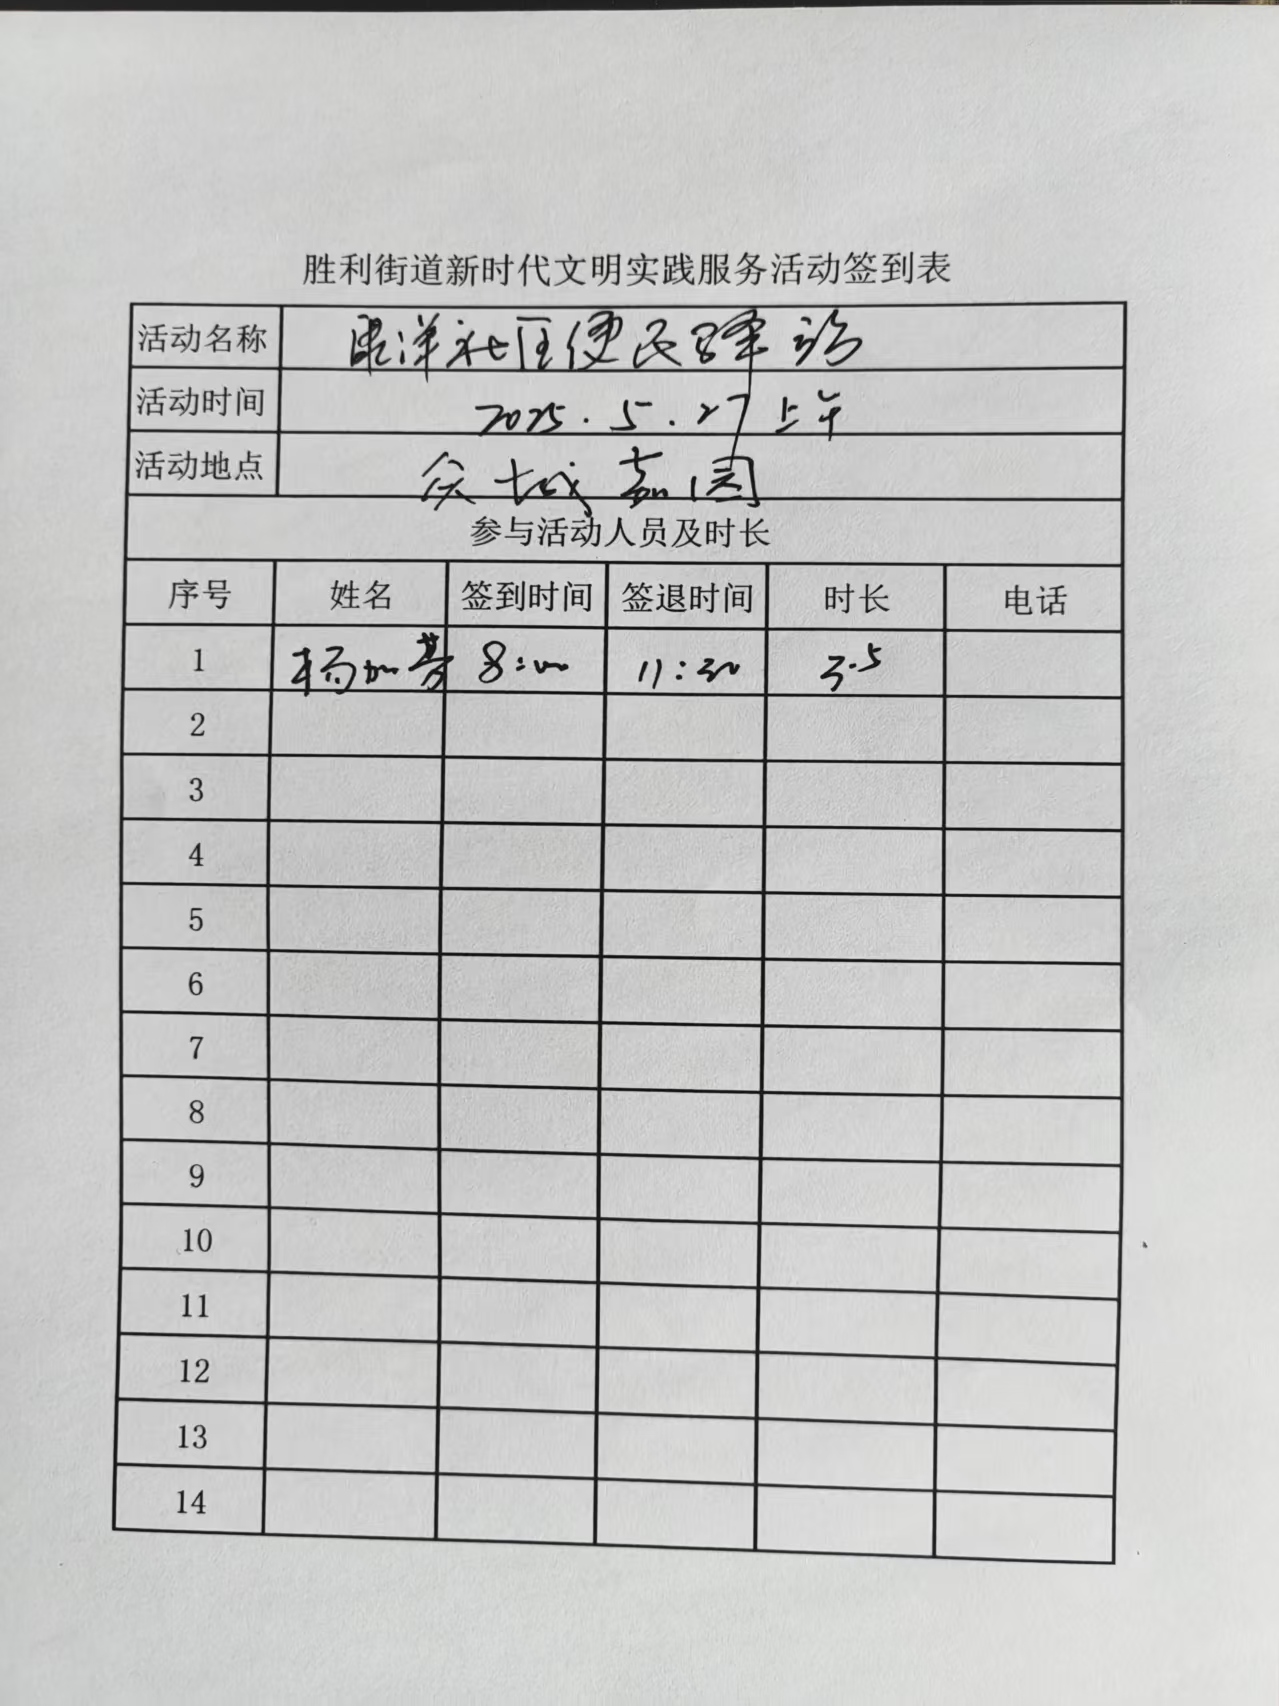 胜利街道新时代文明实践服务活动签到表
活动名称 洋社区便民驿站
活动时间 2025.5.27上午
活动地点 众城嘉园
参与活动人员及时长
序号 姓名 签到时间 签退时间 时长 电话
1 杨加芬 8:00 11:30 3.5
2
3
4
5
6
7
8
9
10
11
12
13
14